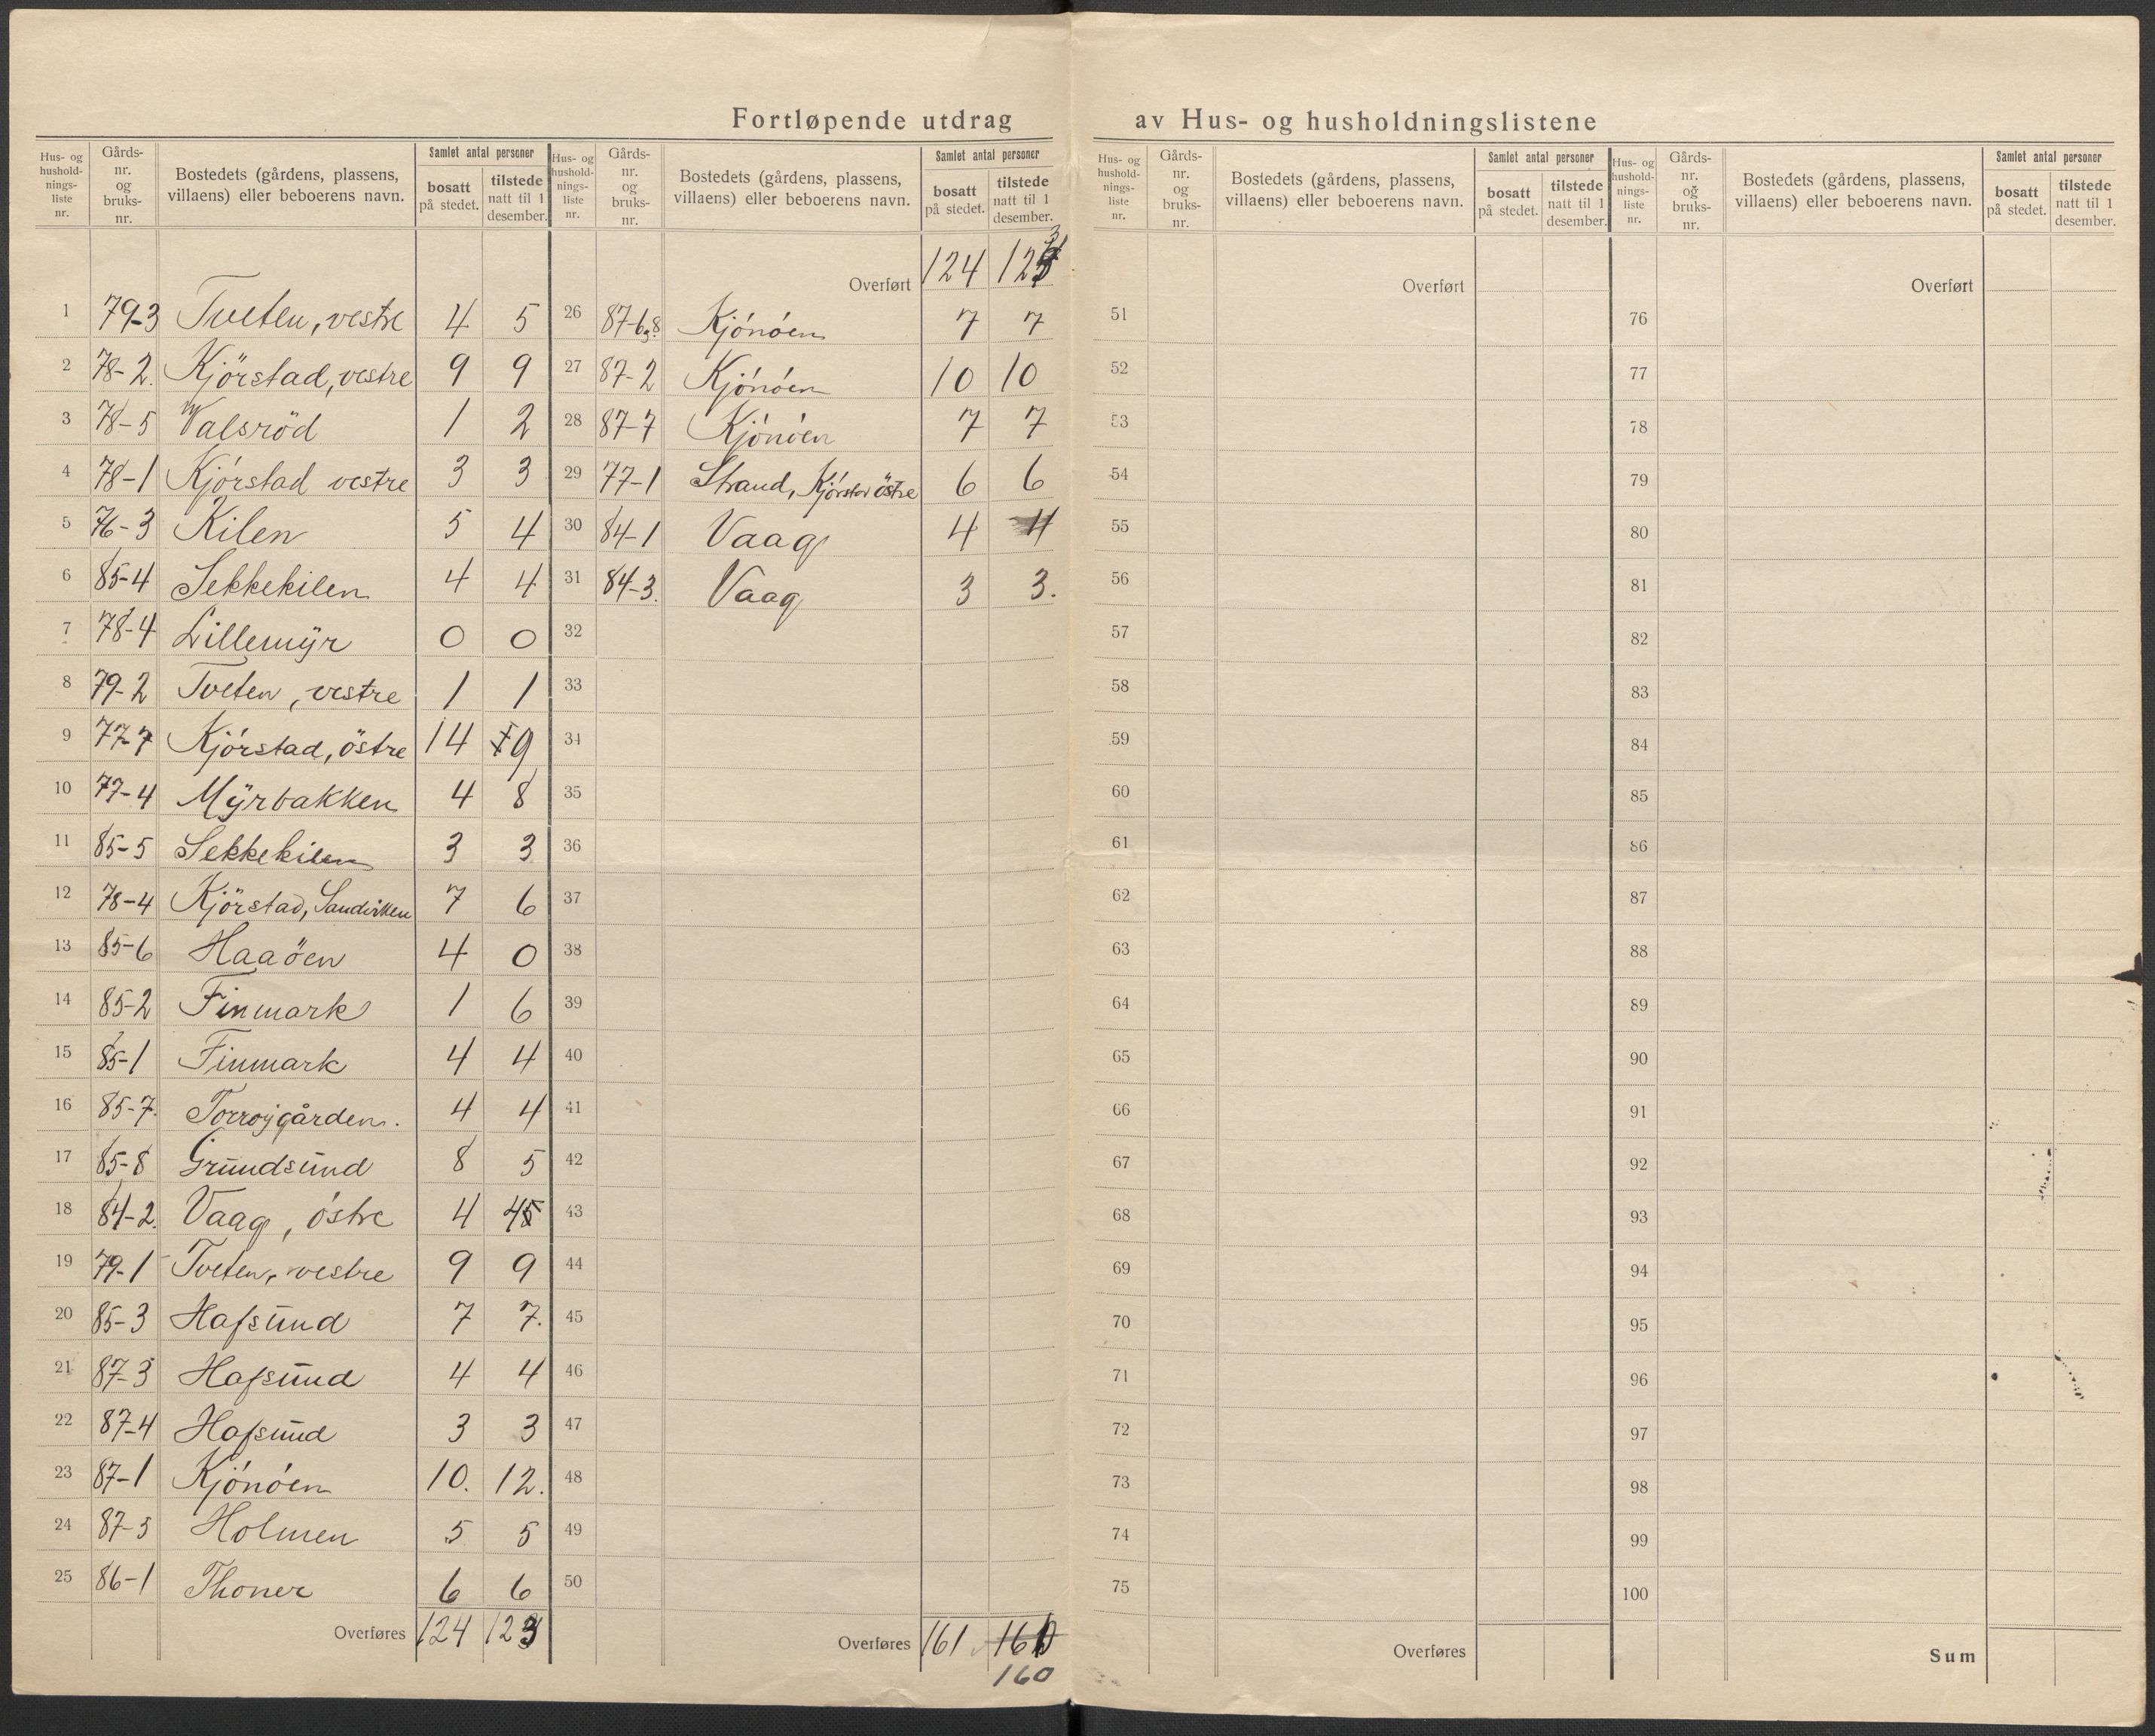 Fortløpende utdrag av Hus- og husholdningslistene
Hus- og hushold-nings-liste nr. Gårds-nr. og bruks-nr. Bostedets (gårdens, plassens, villaens) eller beboerens navn. Samlet antal personer bosatt på stedet. tilstede natt til 1 desember.
1 79-3 Tveten, vestre 4 5
2 78-2. Kjörstad, vestre 9 9
3 78-5 Valsröd 1 2
4 78-1 Kjörstad vestre 3 3
5 76-3 Kilen 5 4
6 85-4 Sekkekilen 4 4
7 78-4 Lillemyr 0 0
8 79-2 Tveten, vestre 1 1
9 77-7 Kjörstad, östre 14 9
10 77-4 Myrbakken 4 8
11 85-5 Sekkekilen 3 3
12 78-4 Kjörstad, Sandviken 7 6
13 85-6 Haaöen 4 0
14 85-2 Finmark 1 6
15 85-1 Finmark 4 4
16 85-7. Torrøjgården. 4 4
17 85-8 Grundsund 8 5
18 84-2. Vaag, östre 4 4
19 79-1 Tveten, vestre 9 9
20 85-3 Hafsund 7 7.
21 87-3 Hafsund 4 4
22 87-4 Hafsund 3 3
23 87-1 Kjönöen 10. 12.
24 87-5 Holmen 5 5
25 86-1 Thoner 6 6
Overføres 124 123
Hus- og hushold-nings-liste nr. Gårds-nr. og bruks-nr. Bostedets (gårdens, plassens, villaens) eller beboerens navn. Samlet antal personer bosatt på stedet. tilstede natt til 1 desember.
Overført 124 123
26 87-6,8 Kjönöen 7 7
27 87-2 Kjönöen 10 10
28 87-7 Kjönöen 7 7
29 77-1 Strand, Kjörstad östre 6 6
30 84-1 Vaag 4 4
31 84-3. Vaag 3 3.
32
33
34
35
36
37
38
39
40
41
42
43
44
45
46
47
48
49
50
Overføres 161 161
160
Hus- og hushold-nings-liste nr. Gårds-nr. og bruks-nr. Bostedets (gårdens, plassens, villaens) eller beboerens navn. Samlet antal personer bosatt på stedet. tilstede natt til 1 desember.
Overført
51
52
53
54
55
56
57
58
59
60
61
62
63
64
65
66
67
68
69
70
71
72
73
74
75
Overføres
Hus- og hushold-nings-liste nr. Gårds-nr. og bruks-nr. Bostedets (gårdens, plassens, villaens) eller beboerens navn. Samlet antal personer bosatt på stedet. tilstede natt til 1 desember.
Overført
76
77
78
79
80
81
82
83
84
85
86
87
88
89
90
91
92
93
94
95
96
97
98
99
100
Sum